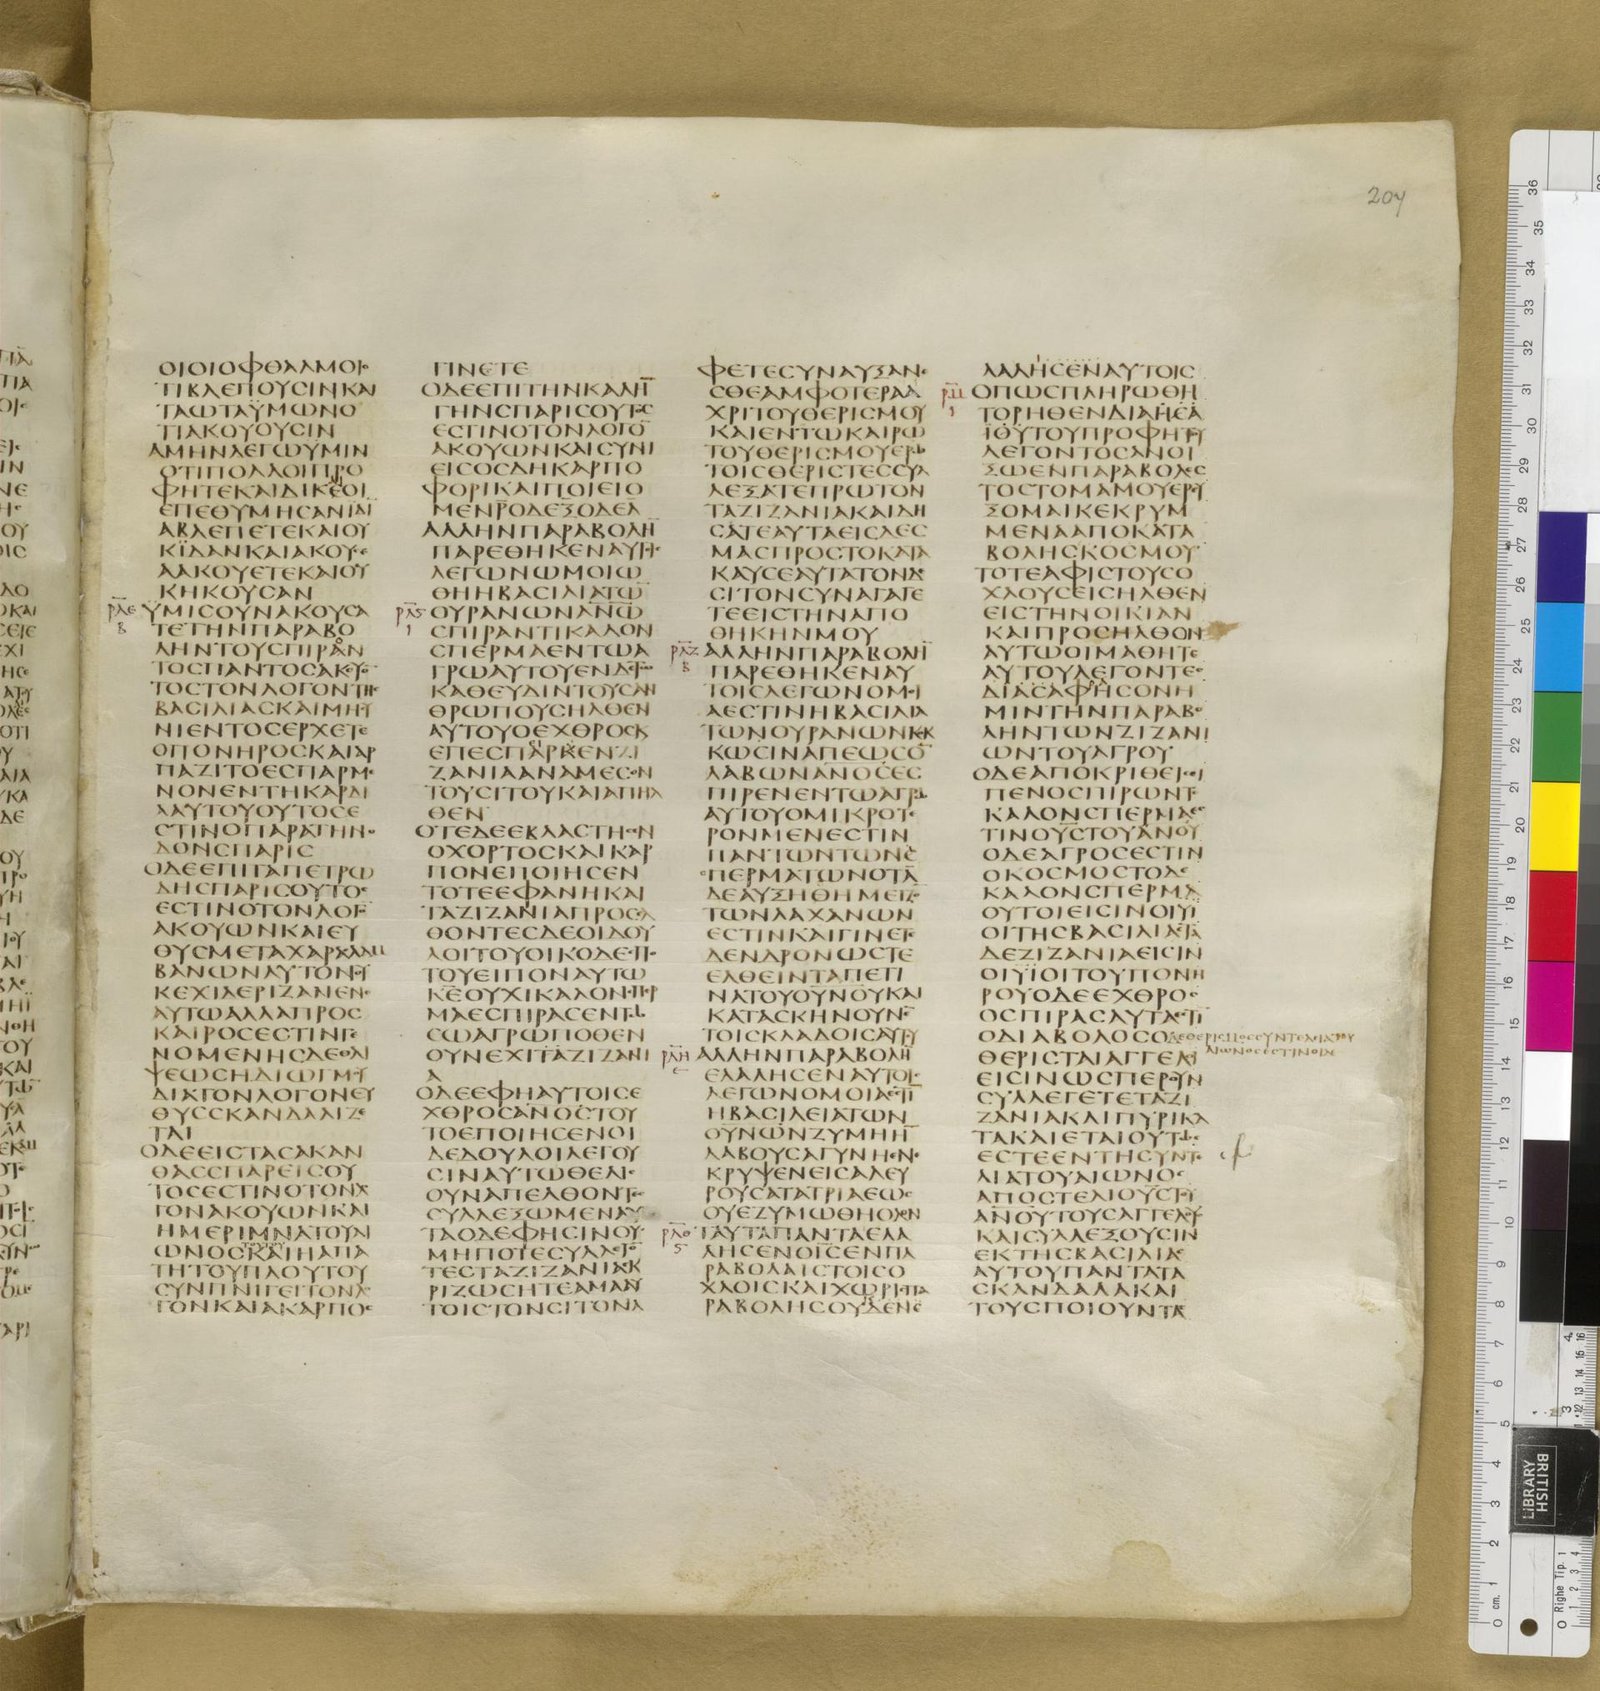 204
ΟΙΟΙΟΦΘΑΛΜΟΙ
ΤΙΒΛΕΠΟΥΣΙΝΚΑΙ
ΤΑΩΤΑΫΜΩΝΟ
ΤΙΑΚΟΥΟΥΣΙΝ
ΑΜΗΝΛΕΓΩΫΜΙΝ
ΟΤΙΠΟΛΛΟΙΠΡΟ
ΦΗΤΕΚΑΙΔΙΚΕΟΙ
ΕΠΕΘΥΜΗΣΑΝΙΔΙ
ΑΒΛΕΠΕΤΕΚΑΙΟΥ
ΚΙΔΑΝΚΑΙΑΚΟΥΣΕ
ΑΑΚΟΥΕΤΕΚΑΙΟΥ
ΚΗΚΟΥΣΑΝ
ΫΜΙΣΟΥΝΑΚΟΥΣΑ
ΤΕΤΗΝΠΑΡΑΒΟ
ΛΗΝΤΟΥΣΠΙΡΑΝ
ΤΟΣΠΑΝΤΟΣΑΚΟΥΟ
ΤΟΣΤΟΝΛΟΓΟΝΤΗΣ
ΒΑΣΙΛΙΑΣΚΑΙΜΗΣΥ
ΝΙΕΝΤΟΣΕΡΧΕΤΕ
ΟΠΟΝΗΡΟΣΚΑΙΑΡ
ΠΑΖΙΤΟΕΣΠΑΡΜΕ
ΝΟΝΕΝΤΗΚΑΡΔΙ
ΑΑΥΤΟΥΟΥΤΟΣΕ
ΣΤΙΝΟΠΑΡΑΤΗΝΟ
ΔΟΝΣΠΑΡΙΣ
ΟΔΕΕΠΙΤΑΠΕΤΡΩ
ΔΗΣΠΑΡΙΣΟΥΤΟΣ
ΕΣΤΙΝΟΤΟΝΛΟΓΟ
ΑΚΟΥΩΝΚΑΙΕΥ
ΘΥΣΜΕΤΑΧΑΡΑΣΛΑΜ
ΒΑΝΩΝΑΥΤΟΝΟΥ
ΚΕΧΙΔΕΡΙΖΑΝΕΝΕ
ΑΥΤΩΑΛΛΑΠΡΟΣ
ΚΑΙΡΟΣΕΣΤΙΝΓΕ
ΝΟΜΕΝΗΣΔΕΘΛΙ
ΨΕΩΣΗΔΙΩΓΜΟΥ
ΔΙΑΤΟΝΛΟΓΟΝΕΥ
ΘΥΣΣΚΑΝΔΑΛΙΖΕ
ΤΑΙ
ΟΔΕΕΙΣΤΑΣΑΚΑΝ
ΘΑΣΣΠΑΡΕΙΣΟΥ
ΤΟΣΕΣΤΙΝΟΤΟΝΛΟ
ΓΟΝΑΚΟΥΩΝΚΑΙ
ΗΜΕΡΙΜΝΑΤΟΥΑΙ
ΩΝΟΣΚΑΙΗΑΠΑ
ΤΗΤΟΥΠΛΟΥΤΟΥ
ΣΥΝΠΝΙΓΕΙΤΟΝΛΟ
ΓΟΝΚΑΙΑΚΑΡΠΟΣ
ΓΙΝΕΤΕ
ΟΔΕΕΠΙΤΗΝΚΑΛΗΝ
ΓΗΝΣΠΑΡΙΣΟΥΤΟΣ
ΕΣΤΙΝΟΤΟΝΛΟΓΟ
ΑΚΟΥΩΝΚΑΙΣΥΝΙ
ΕΙΣΟΣΔΗΚΑΡΠΟ
ΦΟΡΙΚΑΙΠΟΙΕΙΟ
ΜΕΝΡΟΔΕΞΟΔΕΛ
ΑΛΛΗΝΠΑΡΑΒΟΛΗ
ΠΑΡΕΘΗΚΕΝΑΥΤΟΙΣ
ΛΕΓΩΝΩΜΟΙΩ
ΘΗΗΒΑΣΙΛΙΑΤΩ
ΟΥΡΑΝΩΝΑΝΩ
ΣΠΙΡΑΝΤΙΚΑΛΟΝ
ΣΠΕΡΜΑΕΝΤΩΑ
ΓΡΩΑΥΤΟΥΕΝΔΕΤΩ
ΚΑΘΕΥΔΙΝΤΟΥΣΑΝ
ΘΡΩΠΟΥΣΗΛΘΕΝ
ΑΥΤΟΥΟΕΧΘΡΟΣΚ
ΕΠΕΣΠΑΡΚΕΝΖΙ
ΖΑΝΙΑΑΝΑΜΕΣΟΝ
ΤΟΥΣΙΤΟΥΚΑΙΑΠΗΛ
ΘΕΝ
ΟΤΕΔΕΕΒΛΑΣΤΗΣΕΝ
ΟΧΟΡΤΟΣΚΑΙΚΑΡ
ΠΟΝΕΠΟΙΗΣΕΝ
ΤΟΤΕΕΦΑΝΗΚΑΙ
ΤΑΖΙΖΑΝΙΑΠΡΟΣΕΛ
ΘΟΝΤΕΣΔΕΟΙΔΟΥ
ΛΟΙΤΟΥΟΙΚΟΔΕΣΠΟ
ΤΟΥΕΙΠΟΝΑΥΤΩ
ΚΕΟΥΧΙΚΑΛΟΝΣΠΕΡ
ΜΑΕΣΠΙΡΑΣΕΝΤΩ
ΣΩΑΓΡΩΠΟΘΕΝ
ΟΥΝΕΧΙΤΑΖΙΖΑΝΙ
Α
ΟΔΕΕΦΗΑΥΤΟΙΣΕ
ΧΘΡΟΣΑΝΟΣΤΟΥ
ΤΟΕΠΟΙΗΣΕΝΟΙ
ΔΕΔΟΥΛΟΙΛΕΓΟΥ
ΣΙΝΑΥΤΩΘΕΛΙΣ
ΟΥΝΑΠΕΛΘΟΝΤΕΣ
ΣΥΛΛΕΞΩΜΕΝΑΥ
ΤΑΟΔΕΦΗΣΙΝΟΥ
ΜΗΠΟΤΕΣΥΛΛΕΓΟ
ΤΕΣΤΑΖΙΖΑΝΙΑΕΚ
ΡΙΖΩΣΗΤΕΑΜΑΑΥ
ΤΟΙΣΤΟΝΣΙΤΟΝΑ
ΦΕΤΕΣΥΝΑΥΞΑΝΕ
ΣΘΕΑΜΦΟΤΕΡΑΑ
ΧΡΙΤΟΥΘΕΡΙΣΜΟΥ
ΚΑΙΕΝΤΩΚΑΙΡΩ
ΤΟΥΘΕΡΙΣΜΟΥΕΡΩ
ΤΟΙΣΘΕΡΙΣΤΕΣΣΥΛ
ΛΕΞΑΤΕΠΡΩΤΟΝ
ΤΑΖΙΖΑΝΙΑΚΑΙΔΗ
ΣΑΤΕΑΥΤΑΕΙΣΔΕΣ
ΜΑΣΠΡΟΣΤΟΚΑΤΑ
ΚΑΥΣΕΑΥΤΑΤΟΝΔΕ
ΣΙΤΟΝΣΥΝΑΓΑΓΕ
ΤΕΕΙΣΤΗΝΑΠΟ
ΘΗΚΗΝΜΟΥ
ΑΛΛΗΝΠΑΡΑΒΟΛΗ
ΠΑΡΕΘΗΚΕΝΑΥ
ΤΟΙΣΛΕΓΩΝΟΜΟΙ
ΑΕΣΤΙΝΗΒΑΣΙΛΙΑ
ΤΩΝΟΥΡΑΝΩΝΚΟΚ
ΚΩΣΙΝΑΠΕΩΣΟ
ΛΑΒΩΝΑΝΟΣΕΣ
ΠΙΡΕΝΕΝΤΩΑΓΡΩ
ΑΥΤΟΥΟΜΙΚΡΟΤΕ
ΡΟΝΜΕΝΕΣΤΙΝ
ΠΑΝΤΩΝΤΩΝΣ
ΠΕΡΜΑΤΩΝΟΤΑ
ΔΕΑΥΞΗΘΗΜΕΙΖΟ
ΤΩΝΛΑΧΑΝΩΝ
ΕΣΤΙΝΚΑΙΓΙΝΕΤΕ
ΔΕΝΔΡΟΝΩΣΤΕ
ΕΛΘΕΙΝΤΑΠΕΤΙ
ΝΑΤΟΥΟΥΝΟΥΚΑΙ
ΚΑΤΑΣΚΗΝΟΥΝΕ
ΤΟΙΣΚΛΑΔΟΙΣΑΥΤΟΥ
ΑΛΛΗΝΠΑΡΑΒΟΛΗ
ΕΛΑΛΗΣΕΝΑΥΤΟΙΣ
ΛΕΓΩΝΟΜΟΙΑΕΣΤΙ
ΗΒΑΣΙΛΕΙΑΤΩΝ
ΟΥΝΩΝΖΥΜΗΗ
ΛΑΒΟΥΣΑΓΥΝΗΕΝΕ
ΚΡΥΨΕΝΕΙΣΑΛΕΥ
ΡΟΥΣΑΤΑΤΡΙΑΕΩΣ
ΟΥΕΖΥΜΩΘΗΟΛΟΝ
ΤΑΥΤΑΠΑΝΤΑΕΛΑ
ΛΗΣΕΝΟΙΣΕΝΠΑ
ΡΑΒΟΛΑΙΣΤΟΙΣΟ
ΧΛΟΙΣΚΑΙΧΩΡΙΣΠΑ
ΡΑΒΟΛΗΣΟΥΔΕΝΕ
ΛΑΛΗΣΕΝΑΥΤΟΙΣ
ΟΠΩΣΠΛΗΡΩΘΗ
ΤΟΡΗΘΕΝΔΙΑΗΣΑ
ΪΟΥΤΟΥΠΡΟΦΗΤΟΥ
ΛΕΓΟΝΤΟΣΑΝΟΙ
ΞΩΕΝΠΑΡΑΒΟΛΑΙΣ
ΤΟΣΤΟΜΑΜΟΥΕΡΕΥ
ΞΟΜΑΙΚΕΚΡΥΜ
ΜΕΝΑΑΠΟΚΑΤΑ
ΒΟΛΗΣΚΟΣΜΟΥ
ΤΟΤΕΑΦΙΣΤΟΥΣΟ
ΧΛΟΥΣΕΙΣΗΛΘΕΝ
ΕΙΣΤΗΝΟΙΚΙΑΝ
ΚΑΙΠΡΟΣΗΛΘΟΝ
ΑΥΤΩΟΙΜΑΘΗΤΕ
ΑΥΤΟΥΛΕΓΟΝΤΕΣ
ΔΙΑΣΑΦΗΣΟΝΗ
ΜΙΝΤΗΝΠΑΡΑΒΟ
ΛΗΝΤΩΝΖΙΖΑΝΙ
ΩΝΤΟΥΑΓΡΟΥ
ΟΔΕΑΠΟΚΡΙΘΕΙΣΕΙ
ΠΕΝΟΣΠΙΡΩΝΤΟ
ΚΑΛΟΝΣΠΕΡΜΑΕΣ
ΤΙΝΟΥΣΤΟΥΑΝΟΥ
ΟΔΕΑΓΡΟΣΕΣΤΙΝ
ΟΚΟΣΜΟΣΤΟΔΕ
ΚΑΛΟΝΣΠΕΡΜΑ
ΟΥΤΟΙΕΙΣΙΝΟΙΥΙ
ΟΙΤΗΣΒΑΣΙΛΙΑΣΤΑ
ΔΕΖΙΖΑΝΙΑΕΙΣΙΝ
ΟΙΫΙΟΙΤΟΥΠΟΝΗ
ΡΟΥΟΔΕΕΧΘΡΟΣ
ΟΣΠΙΡΑΣΑΥΤΑΕΣΤΙ
ΟΔΙΑΒΟΛΟΣΟΔΕΘΕΡΙΣΜΟΣΣΥΝΤΕΛΙΑΤΟΥ
ΑΙΩΝΟΣΕΣΤΙΝΟΙΔΕ
ΘΕΡΙΣΤΑΙΑΓΓΕΛΟΙ
ΕΙΣΙΝΩΣΠΕΡΟΥΝ
ΣΥΛΛΕΓΕΤΕΤΑΖΙ
ΖΑΝΙΑΚΑΙΠΥΡΙΚΑ
ΤΑΚΑΙΕΤΑΙΟΥΤΩΣ
ΕΣΤΕΕΝΤΗΣΥΝΤΕ
ΛΙΑΤΟΥΑΙΩΝΟΣ
ΑΠΟΣΤΕΛΙΟΥΣΤΟΥ
ΑΝΟΥΤΟΥΣΑΓΓΕΛΟΥΣ
ΚΑΙΣΥΛΛΕΞΟΥΣΙΝ
ΕΚΤΗΣΒΑΣΙΛΙΑΣ
ΑΥΤΟΥΠΑΝΤΑΤΑ
ΣΚΑΝΔΑΛΑΚΑΙ
ΤΟΥΣΠΟΙΟΥΝΤΑΣ
BRITISH
LIBRARY